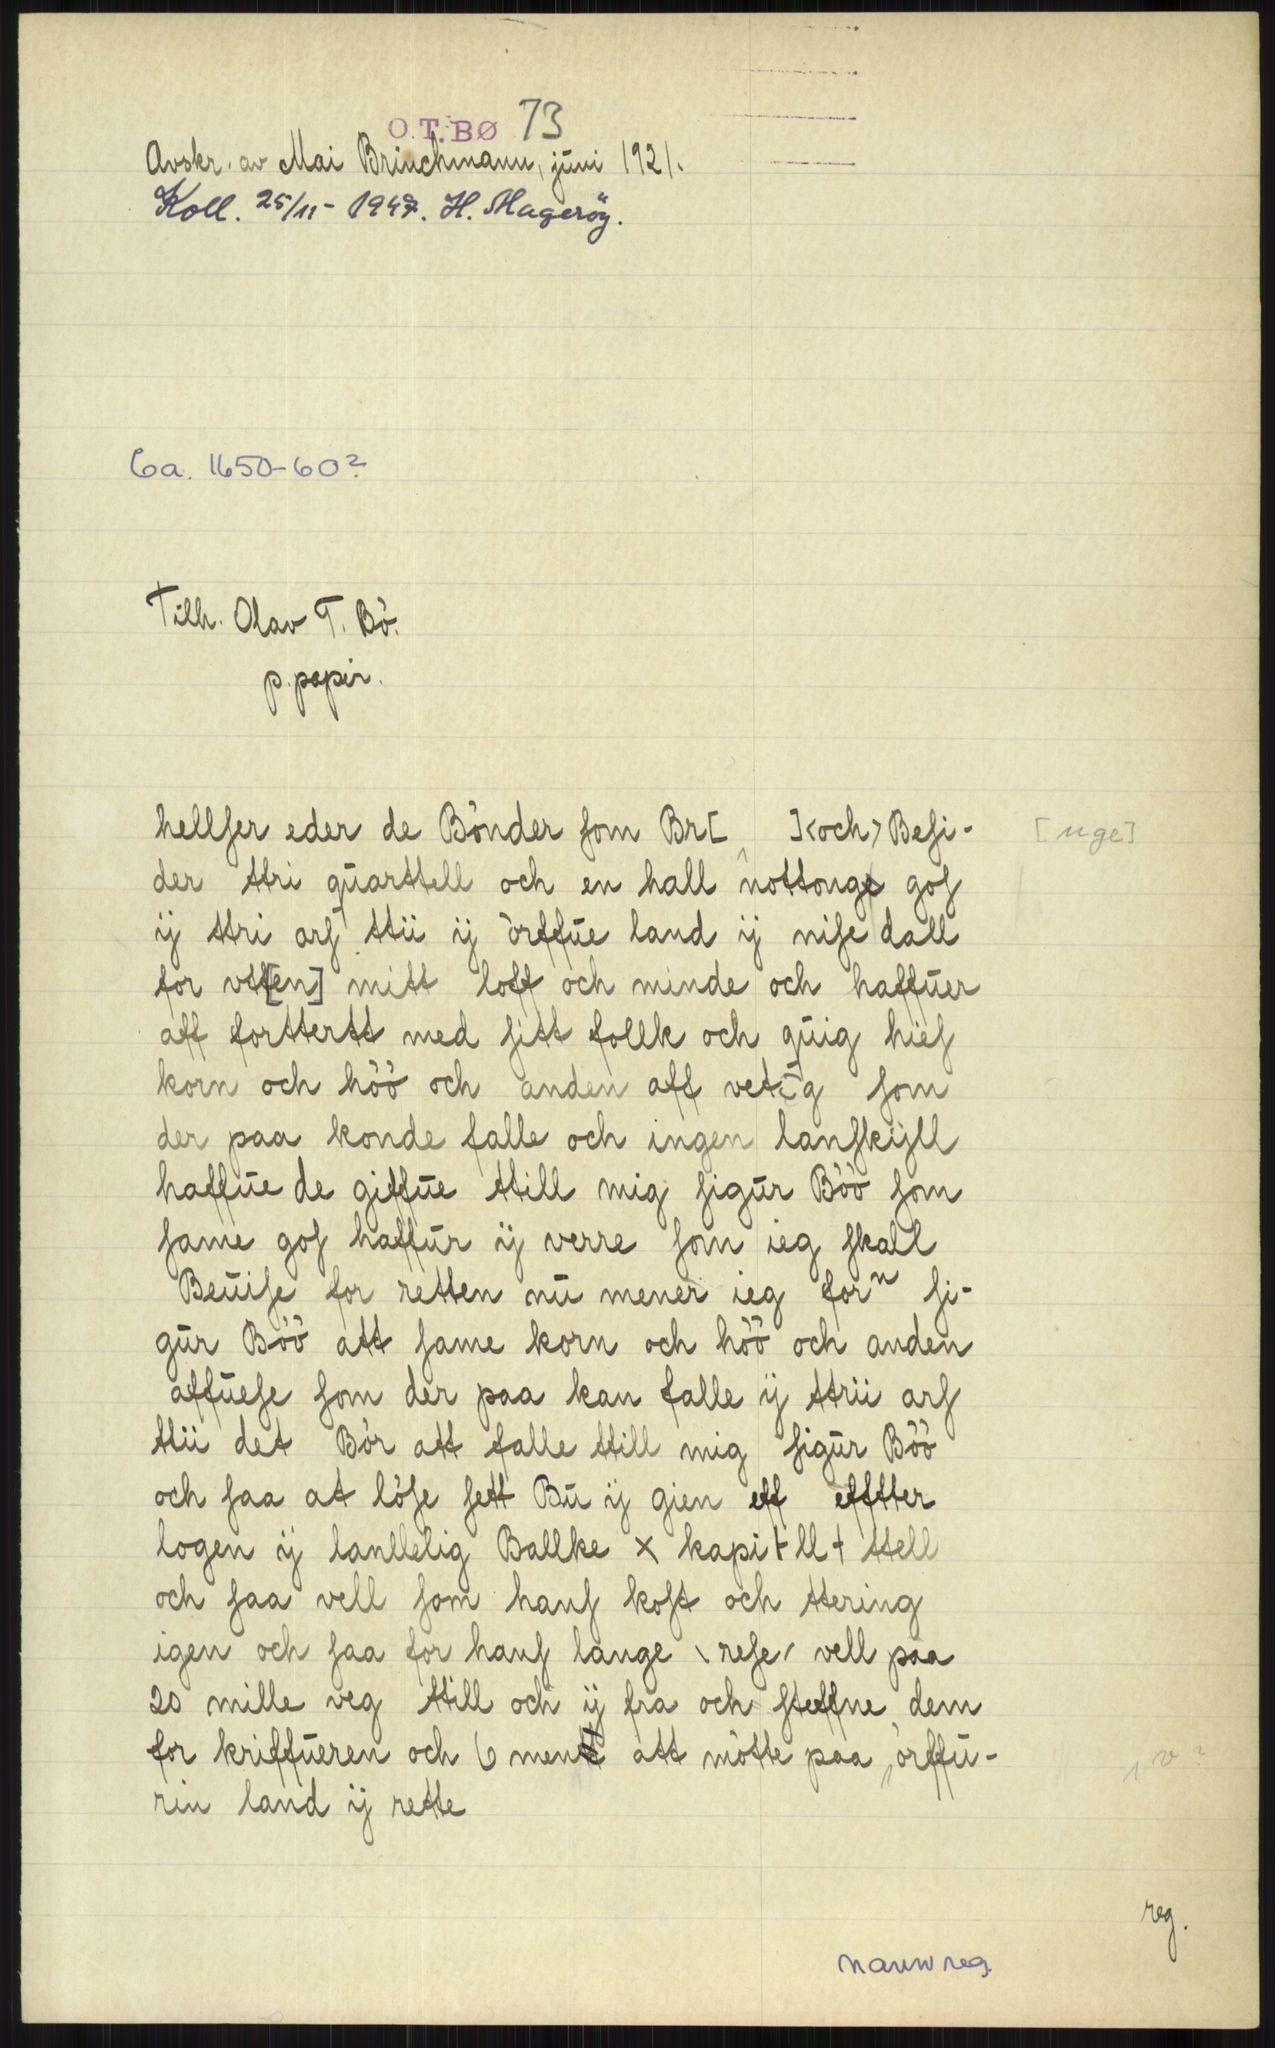 O.T.BØ 73
Avskr. av Mai Brinchmann, juni 1921.
Koll. 25/11-1947. H. Magerøy.
Ca. 1650-60?
Tilh. Olav T. Bö.
p. papir.
hellser eder de Bönder som Br[ ]<och> Besi- [uge]
der ttri quarttell och en hall nottonge gos
ij ttri ars ttii ij örffue land ij nise dall
for vtt[en] mitt loff och minde och haffuer
aff forttertt med sitt follk och quig hies
korn och höö och anden aff vet g som
der paa konde falle och ingen lanskijll
haffue de giffue ttill mig sigur Böö som
same gos haffur ij verre som ieg skall
Beuise for retten nu mener ieg forn si-
gur Böö att same korn och höö och anden
affuese som der paa kan falle ij ttrii ars
ttii det Bör att falle ttill mig sigur Böö
och saa at löse sett Bu ij gien eff efftter
logen ij lanllelig Ballke x kapitll+ ttell
och saa vell som hans kost och ttering
igen och saa for hans lange \rese/ vell paa
20 mille veg ttill och ij fra och steffne dem
for kriffueren och 6 men att mötte paa örffu- v?
rin land ij rette
reg.
navnreg.